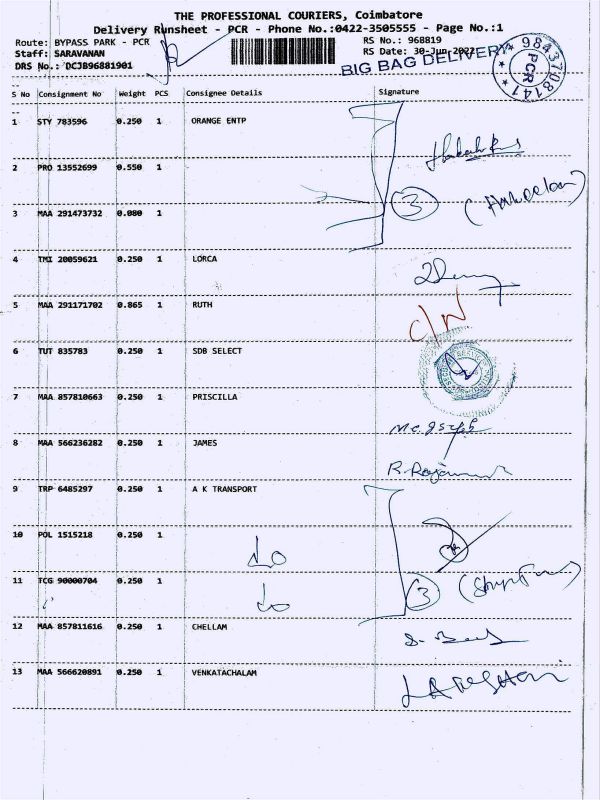 THE PROFESSIONAL COURIERS, Coimbatore
Delivery Runsheet - PCR - Phone No.:0422-3505555 - Page No.:1
Route: BYPASS PARK - PCR
RS No.: 968819
Staff: SARAVANAN
RS Date: 30-Jun-2022
DRS No.: DCJB96881901
BIG BAG DELIVERY
9843708141
PCR
S No Consignment No Weight PCS Consignee Details Signature
1 STY 783596 0.250 1 ORANGE ENTP
2 PRO 13552699 0.550 1
3 MAA 291473732 0.080 1
3
4 TMI 20059621 0.250 1 LORCA
5 MAA 291171702 0.865 1 RUTH
C/N
6 TUT 835783 0.250 1 SDB SELECT
7 MAA 857810663 0.250 1 PRISCILLA
8 MAA 566236282 0.250 1 JAMES
9 TRP 6485297 0.250 1 A K TRANSPORT
10 POL 1515218 0.250 1
11 TCG 90000704 0.250 1
3
12 MAA 857811616 0.250 1 CHELLAM
13 MAA 566620891 0.250 1 VENKATACHALAM